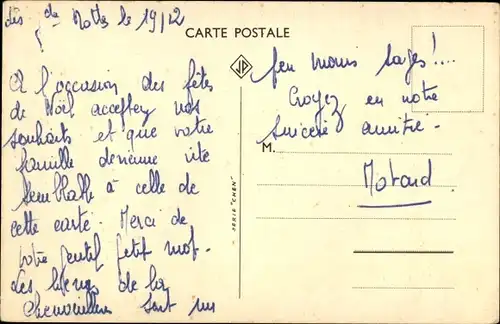 le 19/12
CARTE POSTALE
A l'occasion des fêtes
de Noël acceptez nos
souhaits et que votre
famille devienne vite
semblable à celle de
cette carte. Merci de
votre gentil petit mot.
Les de la
sont un
JP
SERIE "CHEN"
peu moins sages!....
Croyez en notre
sincère amitié.
M.